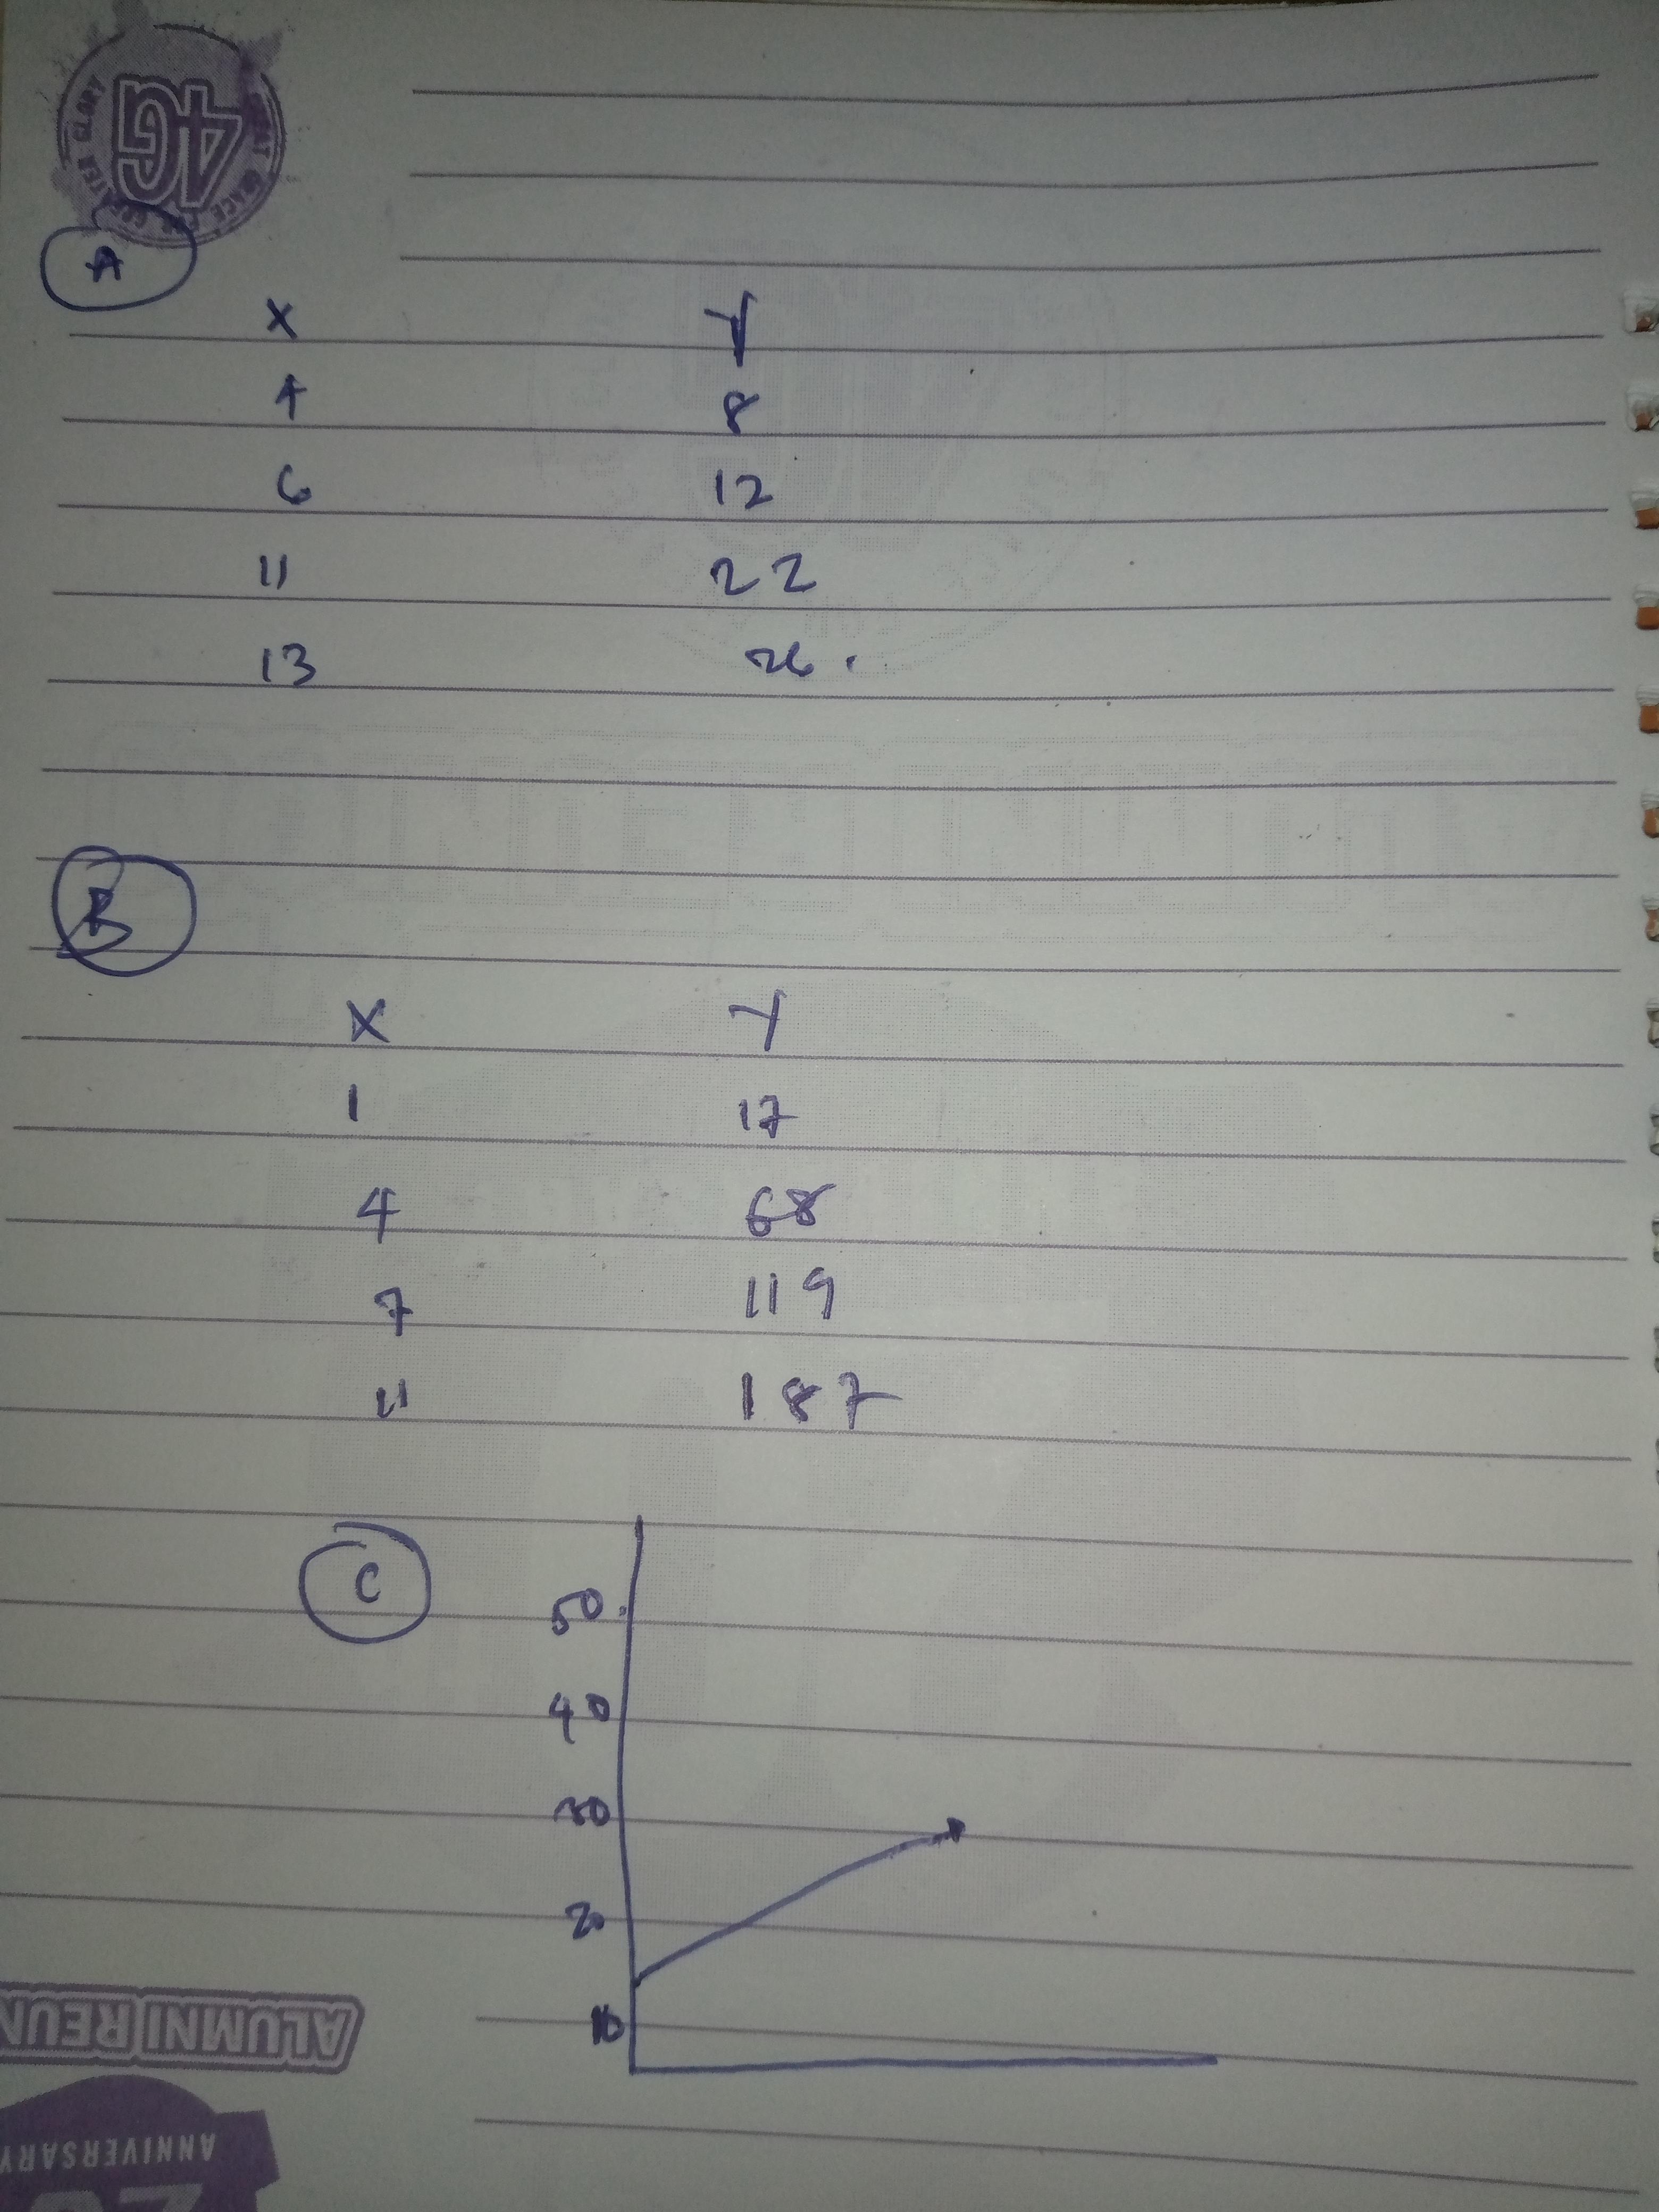 4G
A
X Y
4 8
6 12
11 22
13 26.
B
X Y
1 17
4 68
7 119
11 187
C
50
40
30
20
10
ALUMNI REUN
ANNIVERSARY